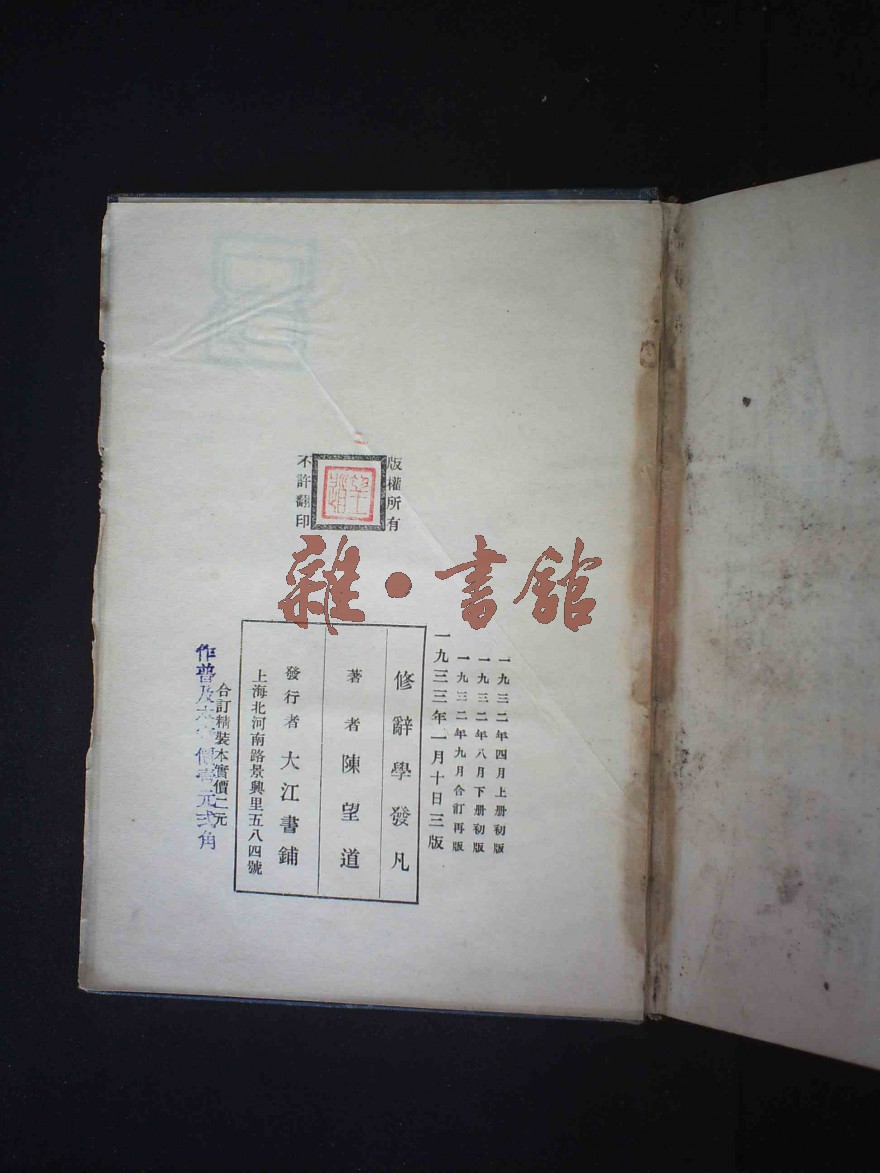 版權所有
不許翻印
雜·書館
一九三二年四月上册初版
一九三二年八月下册初版
一九三二年九月合訂再版
一九三三年一月十日三版
修辭學發凡
著者 陳望道
發行者 大江書鋪
上海北河南路景興里五八四號
合訂精裝本實價二元
作普及本 價壹元弍角